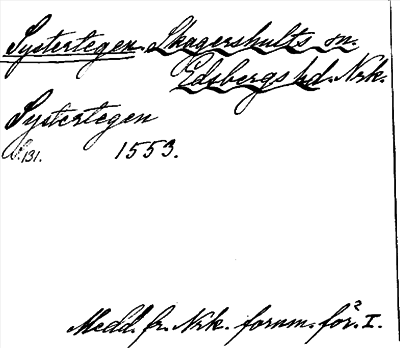 Systertegen. Skagershults sn.
Edsbergs hd. Nrk.
Systertegen
s. 131. 1553.
Medd. fr. Nrk. fornm. för. I.